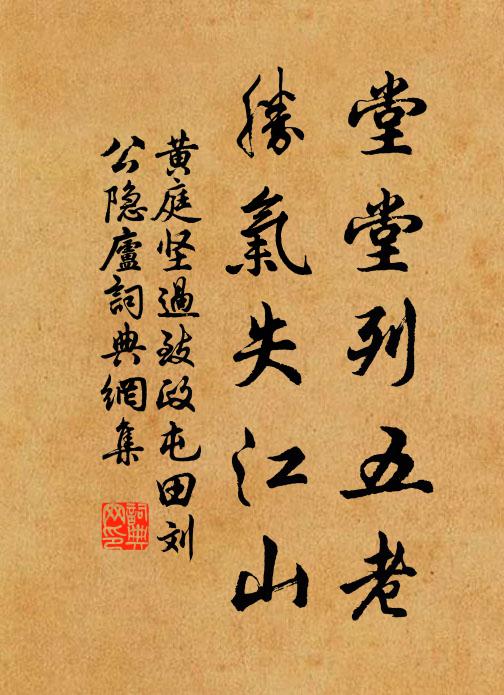 堂堂列五老
勝氣失江山
黄庭坚過致政屯田刘
公隐廬詞典網集
詞典
网印